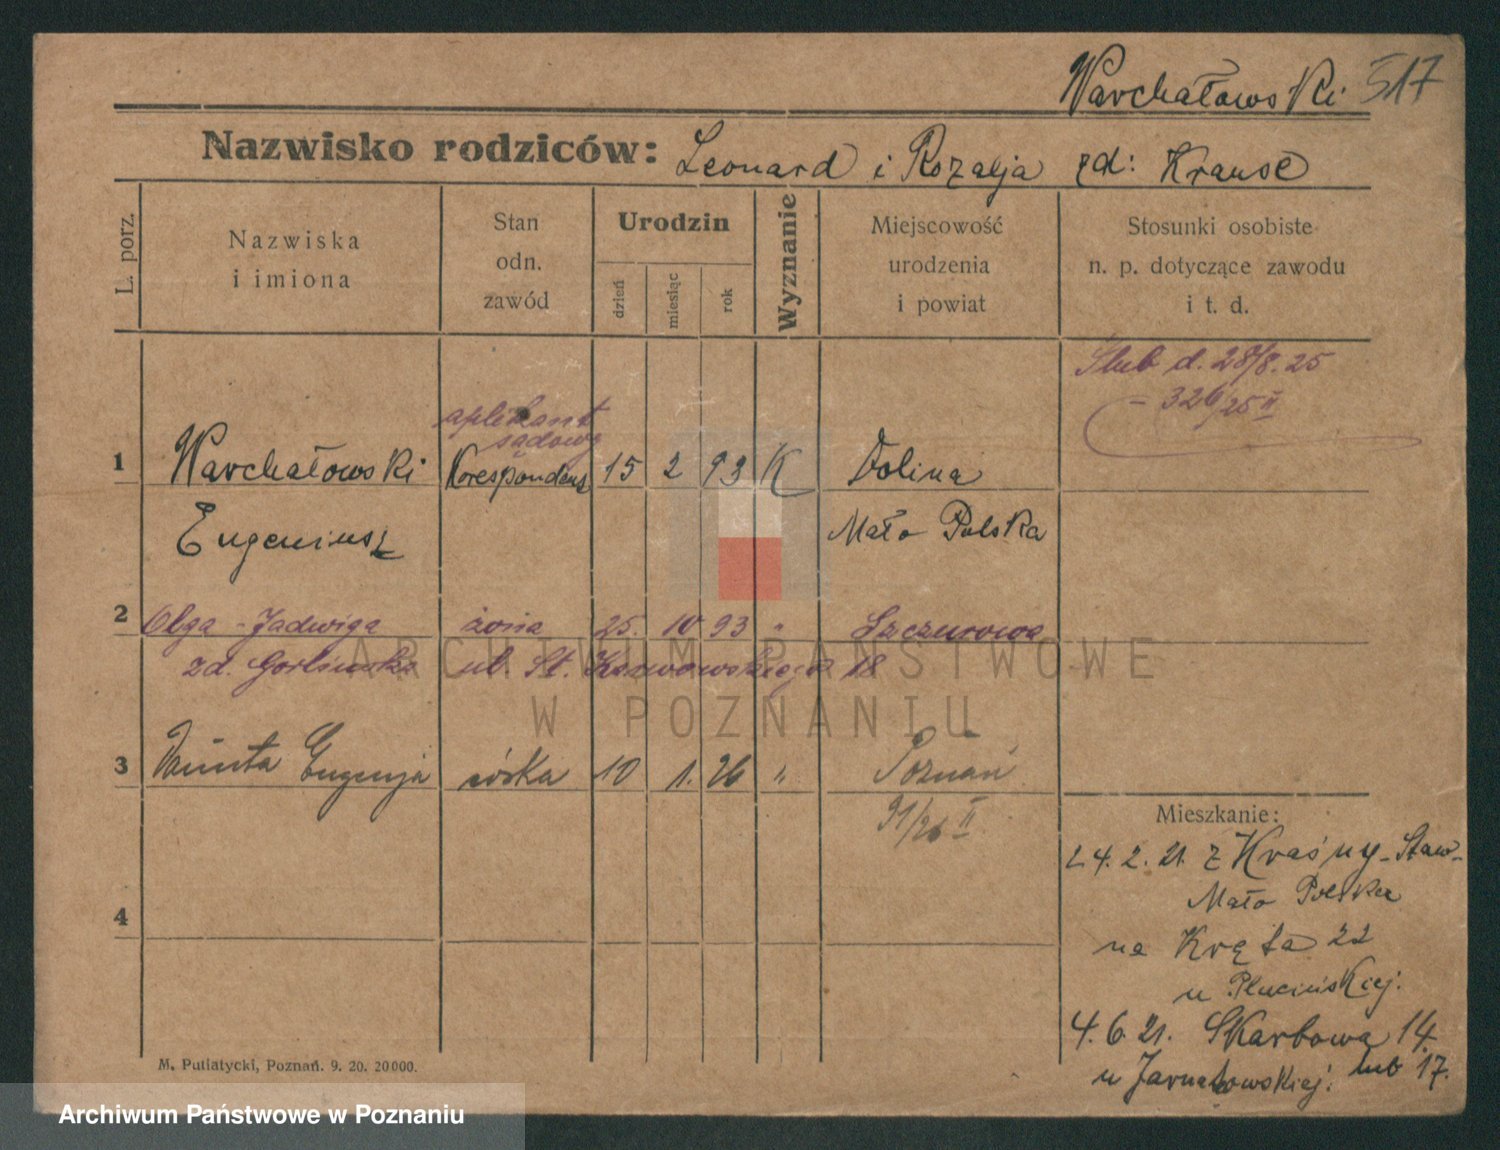 Warchałowski 517
Nazwisko rodziców: Leonard i Rozalja zd: Krause
L. porz.
Nazwiska
i imiona
Stan
odn.
zawód
Urodzin
dzień
miesiąc
rok
Wyznanie
Miejscowość
urodzenia
i powiat
Stosunki osobiste
n. p. dotyczące zawodu
i t. d.
Ślub d. 28/8. 25
- 326/25 II
aplikant
sądowy
1 Warchałowski Korespondent 15 2 93 K Dolina
Eugeniusz Mało Polska
2 Olga - Jadwiga żona 25. 10 93 " Szczurowa
zd. Gorlinska ul. St. Karwowskiego 18
3 Danuta Eugenja córka 10 1. 26 " Poznań
91/26 II
Mieszkanie:
24. 2. 21. z Kraśny-Staw-
Mało Polska
na Kręta 22
u Plucińskiej.
4
4. 6. 21. Skarbowa 14.
lub 17.
u Jarnatowskiej.
M. Putiatycki, Poznań. 9. 20. 20000.
ARCHIWUM PAŃSTWOWE
W POZNANIU
Archiwum Państwowe w Poznaniu